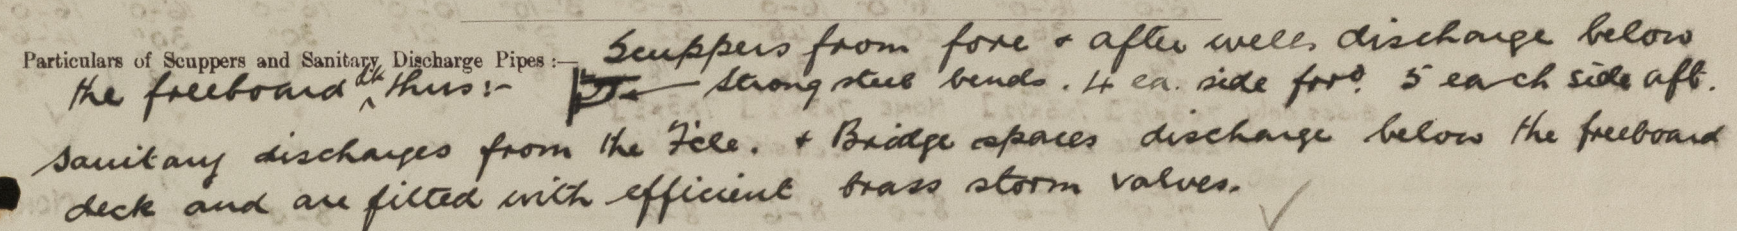 Particulars of Scuppers and Sanitary Discharge Pipes :— Scuppers from fore & after wells discharge below
the freeboard dk thus :- Strong steel bends. 4 ea. side for'd. 5 each side aft.
Sanitary discharges from the F'cle. & Bridge spaces discharge below the freeboard
deck and are fitted with efficient brass storm valves.